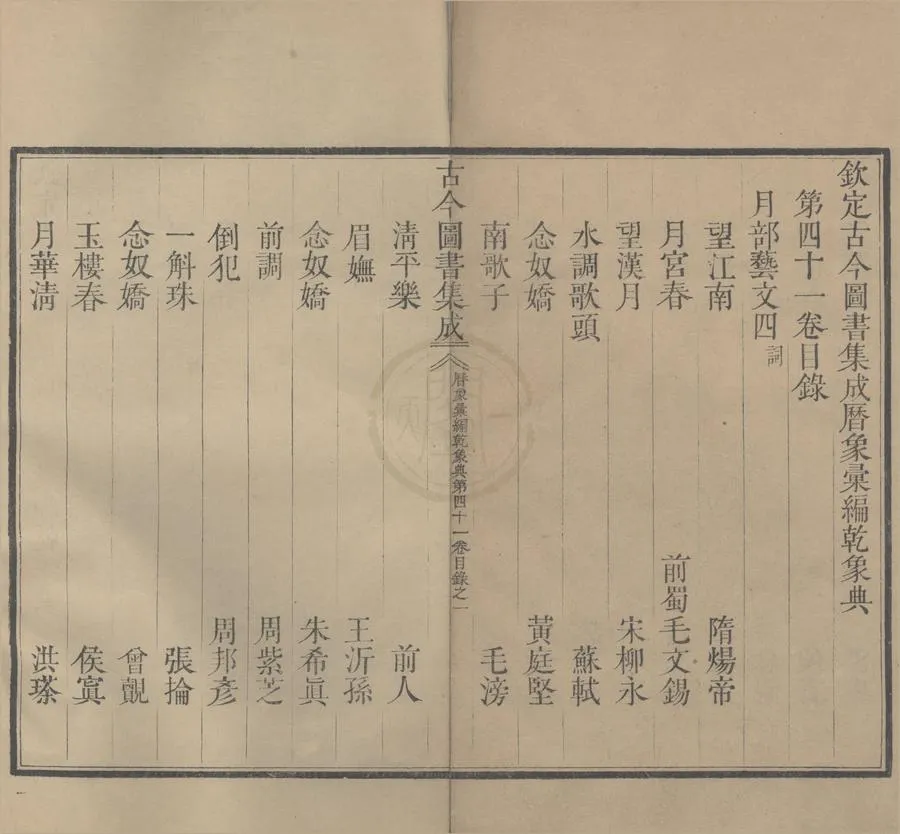 欽定古今圖書集成曆象彙編乾象典
第四十一卷目錄
月部藝文四詞
望江南 隋煬帝
月宮春 前蜀毛文錫
望漢月 宋柳永
水調歌頭 蘇軾
念奴嬌 黃庭堅
南歌子 毛滂
古今圖書集成 曆象彙編乾象典第四十一卷目錄之一
淸平樂 前人
眉嫵 王沂孫
念奴嬌 朱希眞
前調 周紫芝
倒犯 周邦彥
一斛珠 張掄
念奴嬌 曾覿
玉樓春 侯寘
月華淸 洪瑹